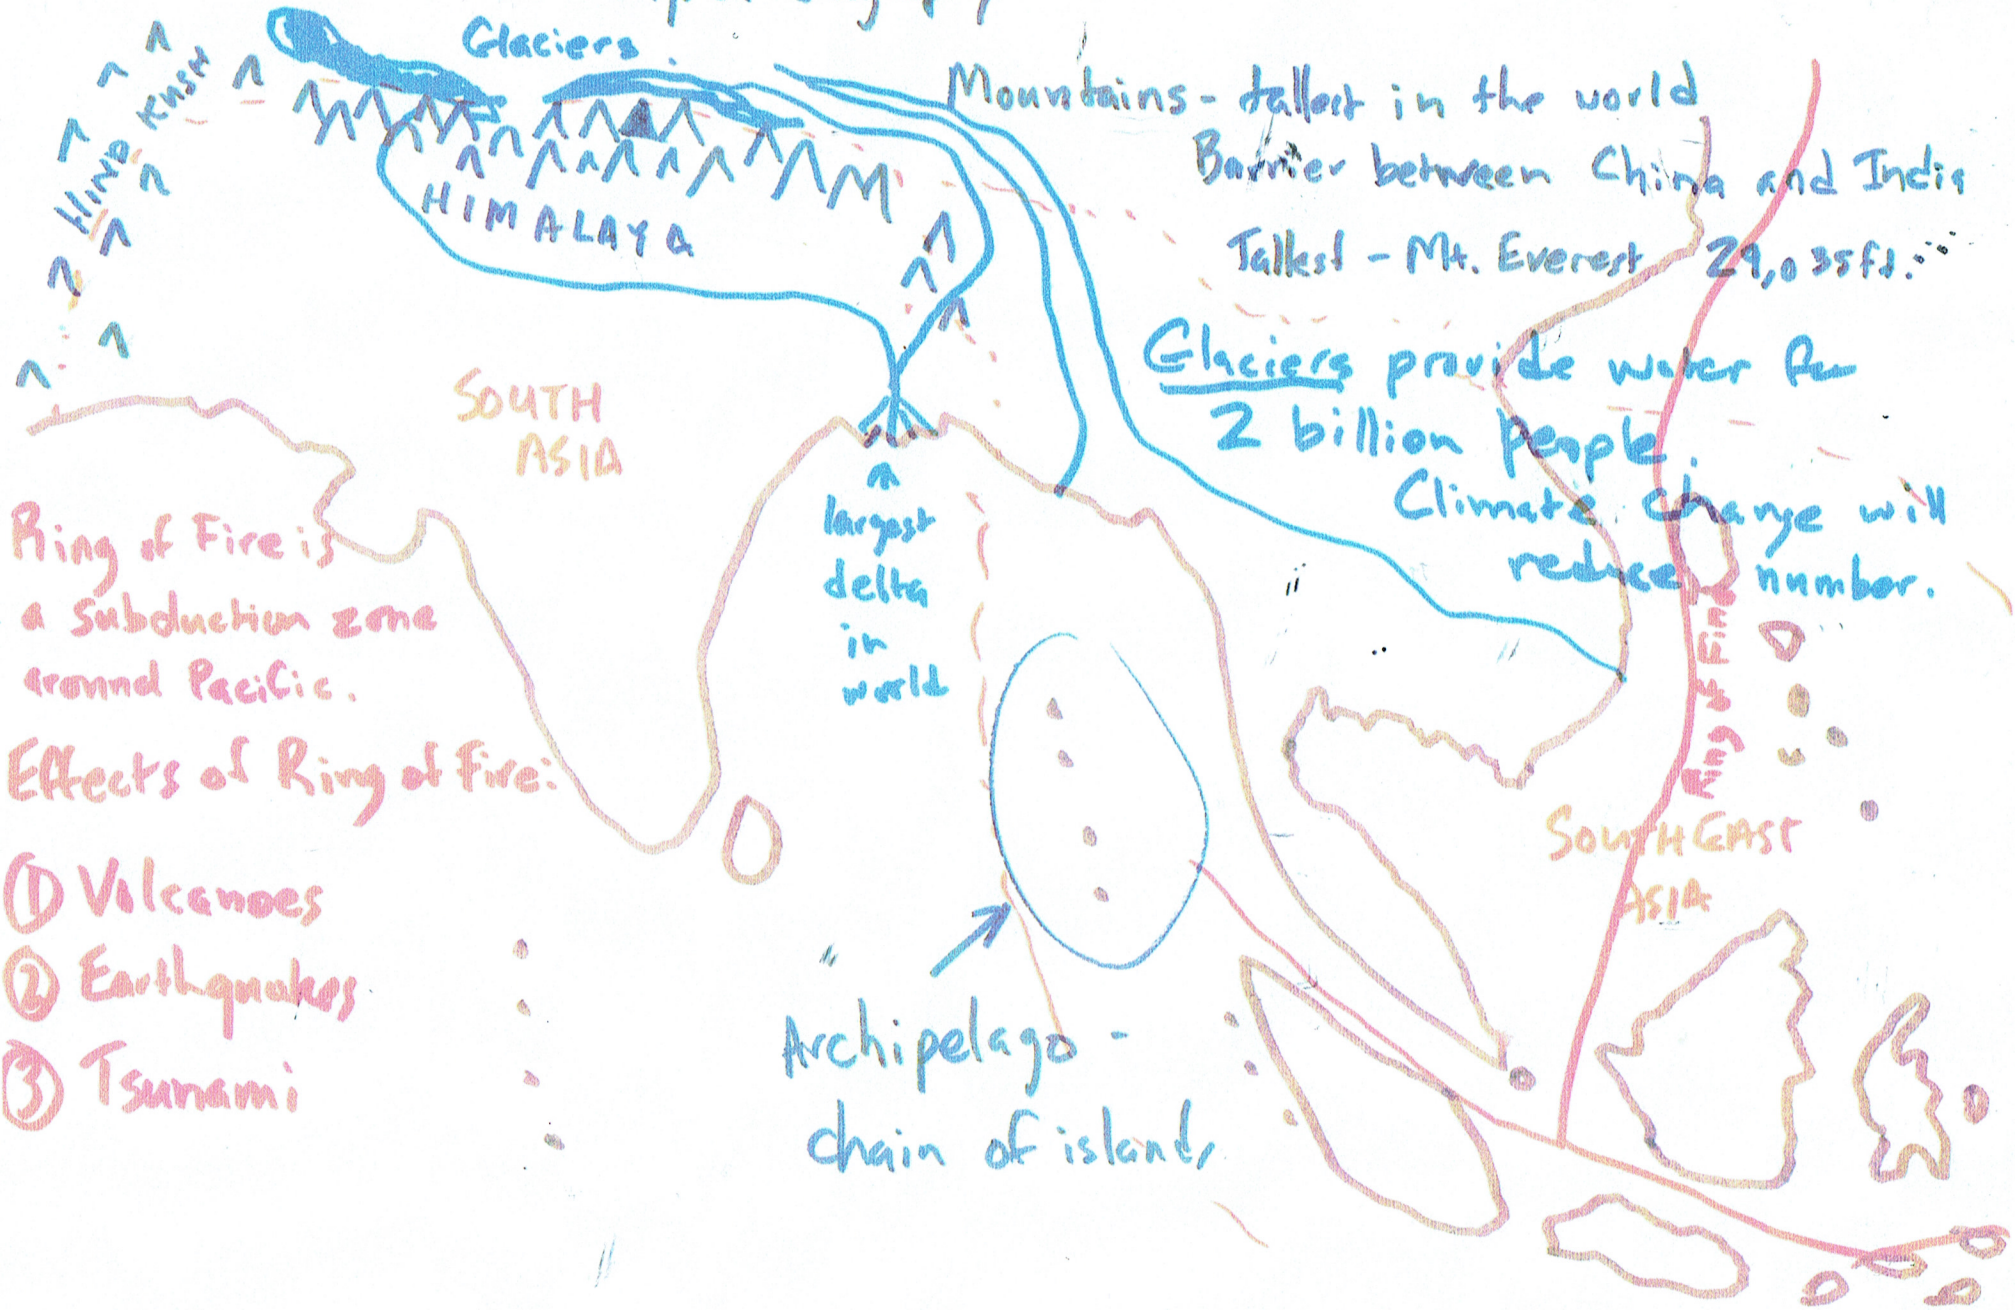 Glaciers
HINDU KUSH
HIMALAYA
Mountains - tallest in the world
Barrier between China and India
Tallest - Mt. Everest 29,035ft.
Glaciers provide water for
2 billion people.
Climate change will
reduce number.
SOUTH
ASIA
^
largest
delta
in
world
Ring of Fire is
a subduction zone
around Pacific.
Effects of Ring of Fire:
① Volcanoes
② Earthquakes
③ Tsunami
Ring of Fire
SOUTHEAST
ASIA
Archipelago -
chain of islands